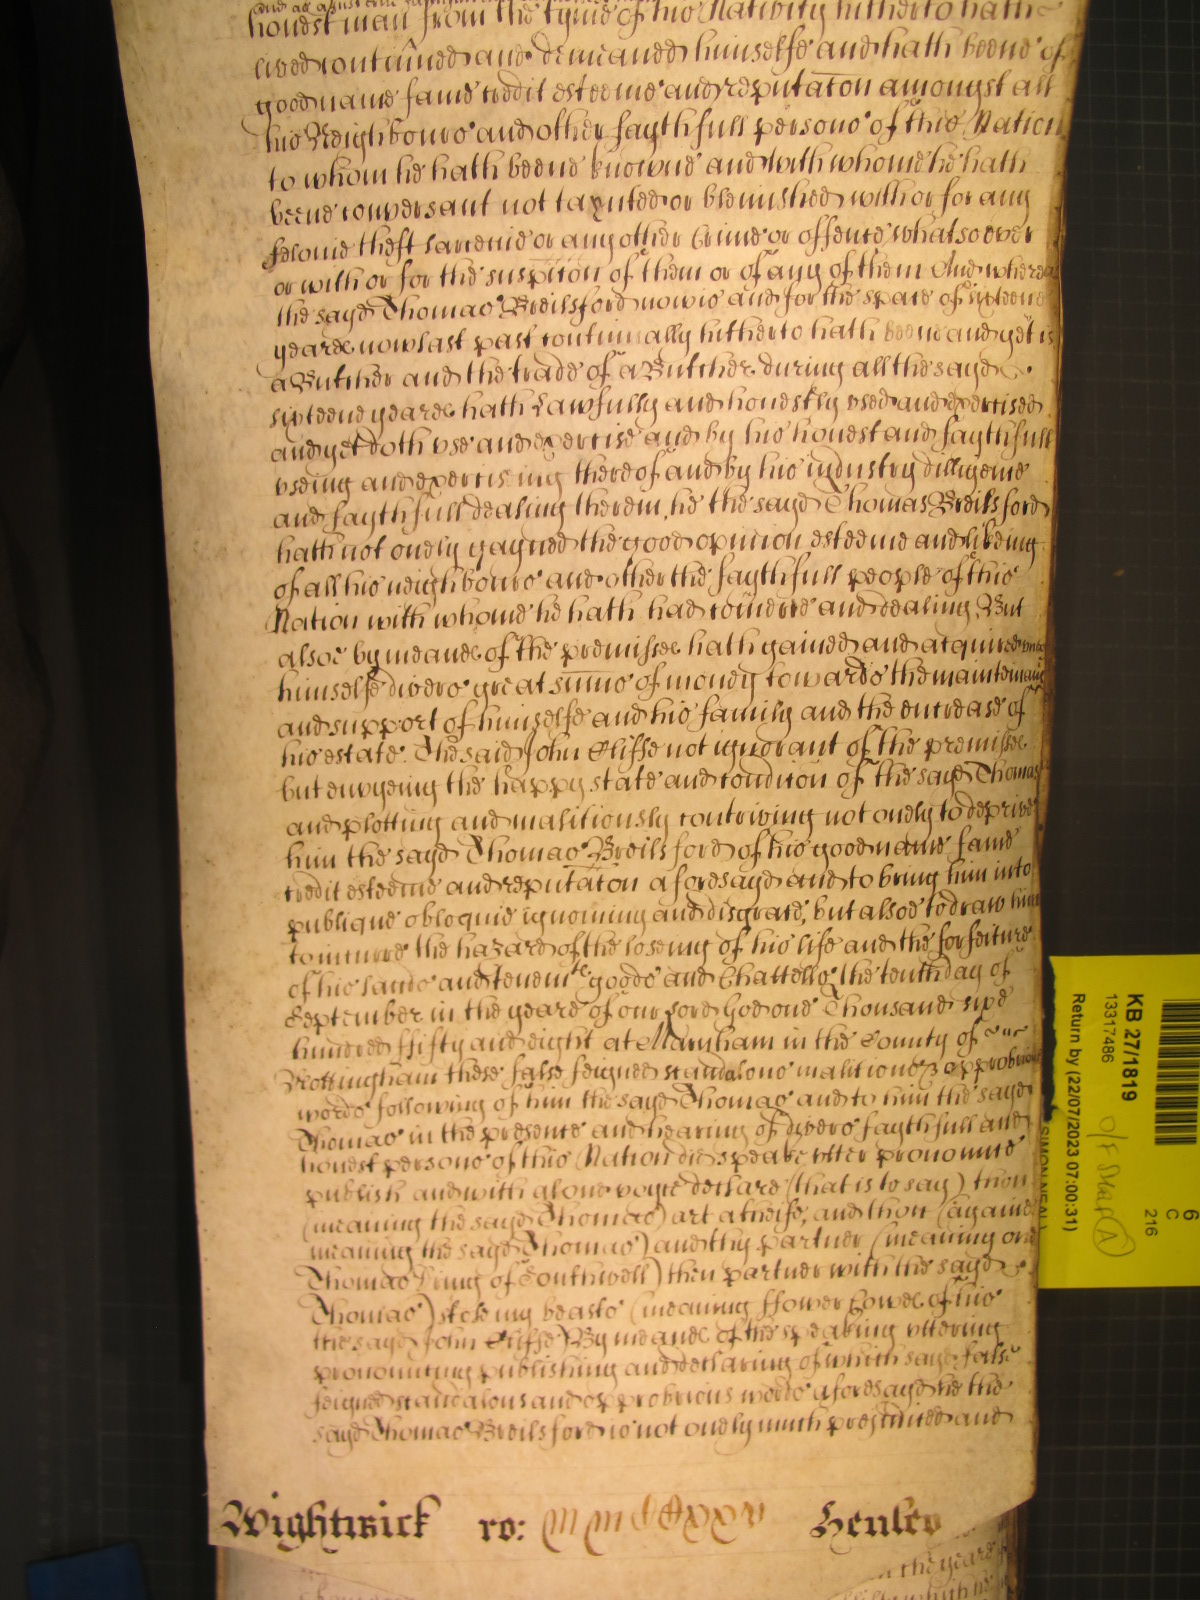 honest man from the tyme of his Nativity hitherto hath
lived continued and demeaned himselfe and hath beene of
good name fame credit esteeme and reputacon amongst all
his Neighbours and other faythfull persons of this Nation
to whom he hath beene knowne and with whome he hath
beene conversant not taynted or blemished with or for any
felonie theft larcenie or any other Crime or offence whatsoever
or with or for the suspicon of them or of any of them And whereas
the sayd Thomas Breilsford nowis and for the space of sixteene
yeares now last past continually hitherto hath beene and yet is
a Butcher and the trade of a Butcher during all the sayd
sixteene yeares hath Lawfully and honestly used and exercised
and yet doth use and exercise and by his honest and faythfull
useing and exerciseing thereof and by his industry dilligence
and faythfull dealing therein he the sayd Thomas Breilsford
hath not onely gayned the good opinion esteeme and likeing
of all his neighbours and other the faythfull people of this
Nation with whome he hath had comerce and dealing But
alsoe by meanes of the premisses hath gained and acquired unto
himselfe divers great sumes of money towards the mainteinance
and support of himselfe and his family and the encrease of
his estate. The said John Cliffe not ignorant of the premisses
but envyeing the happy state and condicon of the sayd Thomas
and plotting and malitiously contriving not onely to deprive
him the sayd Thomas Breilsford of his good name fame
credit esteeme and reputacon aforesayd and to bring him into
publique obloquie ignominy and disgrace, but alsoe to draw him
to incurre the hazard of the loseing of his life and the forfeiture
of his lands and tenemts goods and Chattells the tenth day of
September in the yeare of our Lord God one Thousand sixe
hundred ffifty and eight at Marnham in the County of
Nottingham these false feigned scandalous malitious & opprobrious
words following of him the sayd Thomas and to him the sayd
Thomas in the presence and hearing of dyvers faythfull and
honest persons of this Nation did speake utter pronounce
publish and with a loud voyce declare (that is to say) thou
(meaning the sayd Thomas) art a theife, and thou (againe
meaning the sayd Thomas) and thy partner (meaning one
Thomas King of Southwell) then partner with the sayd
Thomas) stole my beasts (meaning ffower Cowes of his
the sayd John Cliffe) By meanes of the speaking uttering
pronouncing publishing and declaring of which sayd false
feigned scandalous and opprobrious words aforesayd he the
sayd Thomas Breilsford is not onely much prejudiced and
Wightwick ro: Henley
KB 27/1819
13317486
Return by (22/07/2023 07:00:31)
SIMON NEAL)
6
C
216